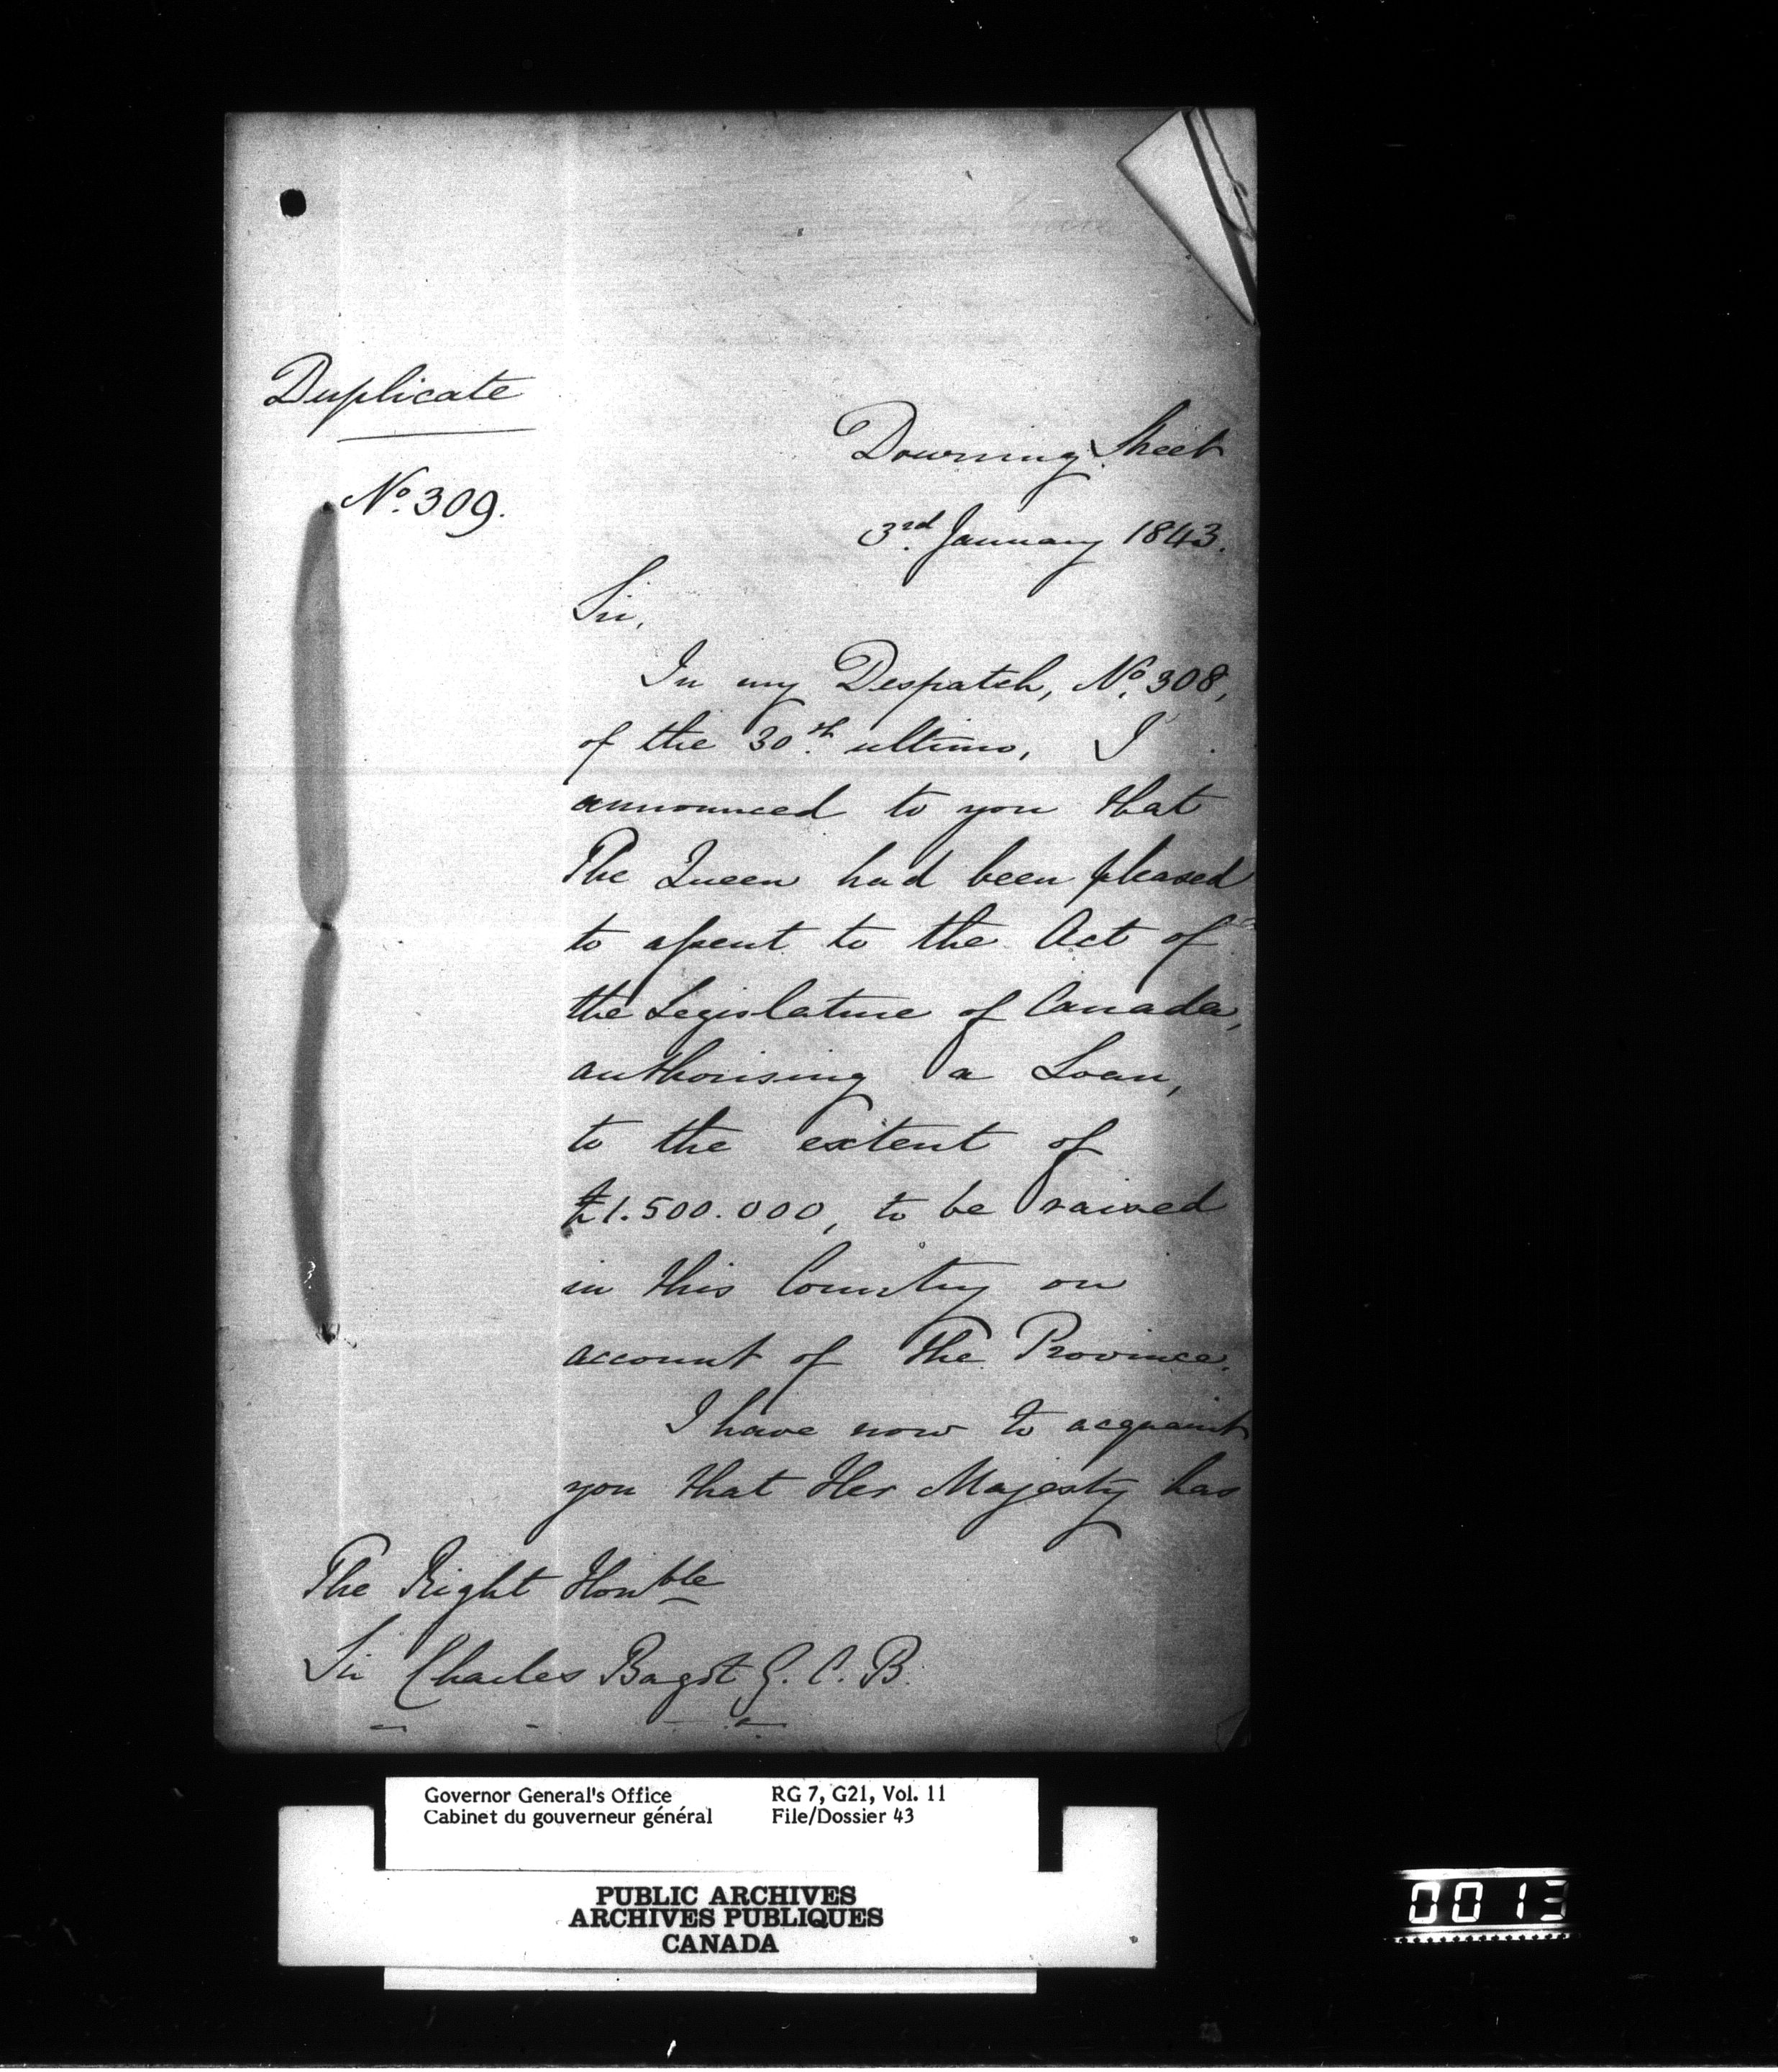 Duplicate
Nº. 309.
Downing Street
3rd. January 1843.
Sir,
In my Despatch, Nº. 308,
of the 30th. ultimo, I
announced to you that
The Queen had been pleased
to assent to the Act of
the Legislature of Canada,
authorising a Loan,
to the extent of
£1.500.000, to be raised
in this Country on
account of the Province.
I have now to acquaint
you that Her Majesty has
The Right Honble
Sir Charles Bagot G. C. B.
Governor General's Office
Cabinet du gouverneur général
RG 7, G21, Vol. 11
File/Dossier 43
PUBLIC ARCHIVES
ARCHIVES PUBLIQUES
CANADA
0013